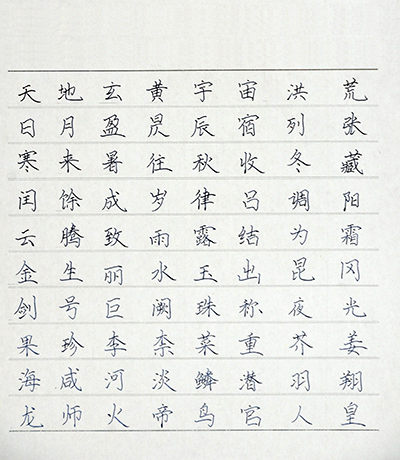 天地玄黄宇宙洪荒
日月盈昃辰宿列张
寒来暑往秋收冬藏
闰馀成岁律吕调阳
云腾致雨露结为霜
金生丽水玉出昆冈
剑号巨阙珠称夜光
果珍李柰菜重芥姜
海咸河淡鳞潜羽翔
龙师火帝鸟官人皇